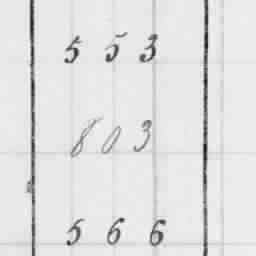 553
803
566